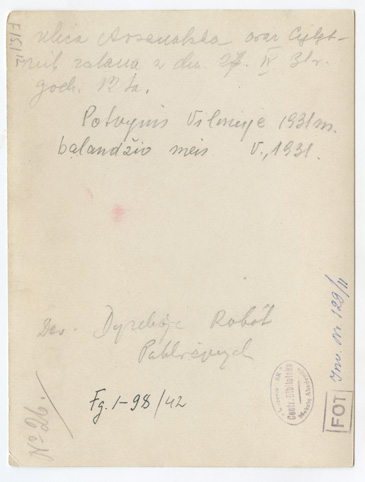 ulica Arsenalska oraz
zalana z dn. 27. IV 31 r.
godz. 12 ta.
Potvynis Vilniuje 1931 m.
balandžio mėn V., 1931.
Dyrekcja Robót
Publicznych
Fg. 1-98/42
№ 26.
FOT
Inv. Nr. 129/11